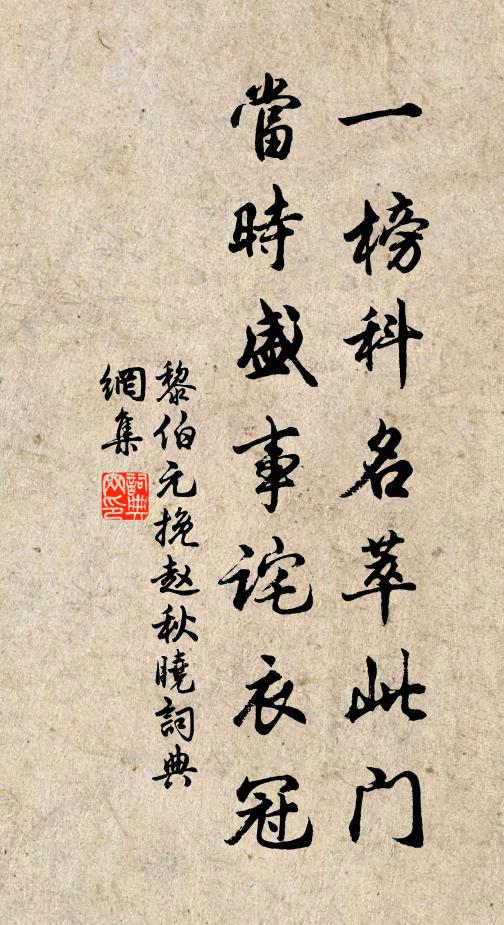 一榜科名萃此门
當時盛事詫衣冠
黎伯元挽赵秋曉詞典
網集
詞典
网印